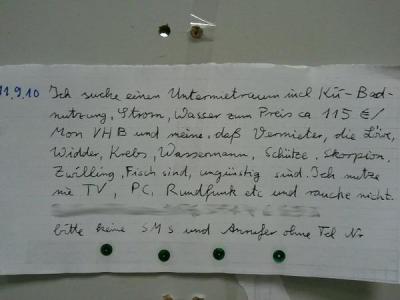 11.9.10 Ich suche einen Untermietraum incl Kü-Bad-
nutzung, Strom, Wasser zum Preis ca 115 €/
Mon VHB und meine, daß Vermieter, die Löwe,
Widder, Krebs, Wassermann, Schütze, Skorpion,
Zwilling, Fisch sind, ungünstig sind. Ich nutze
nie TV, PC, Rundfunk etc und rauche nicht.
bitte keine SMS und Anrufer ohne Tel Nr